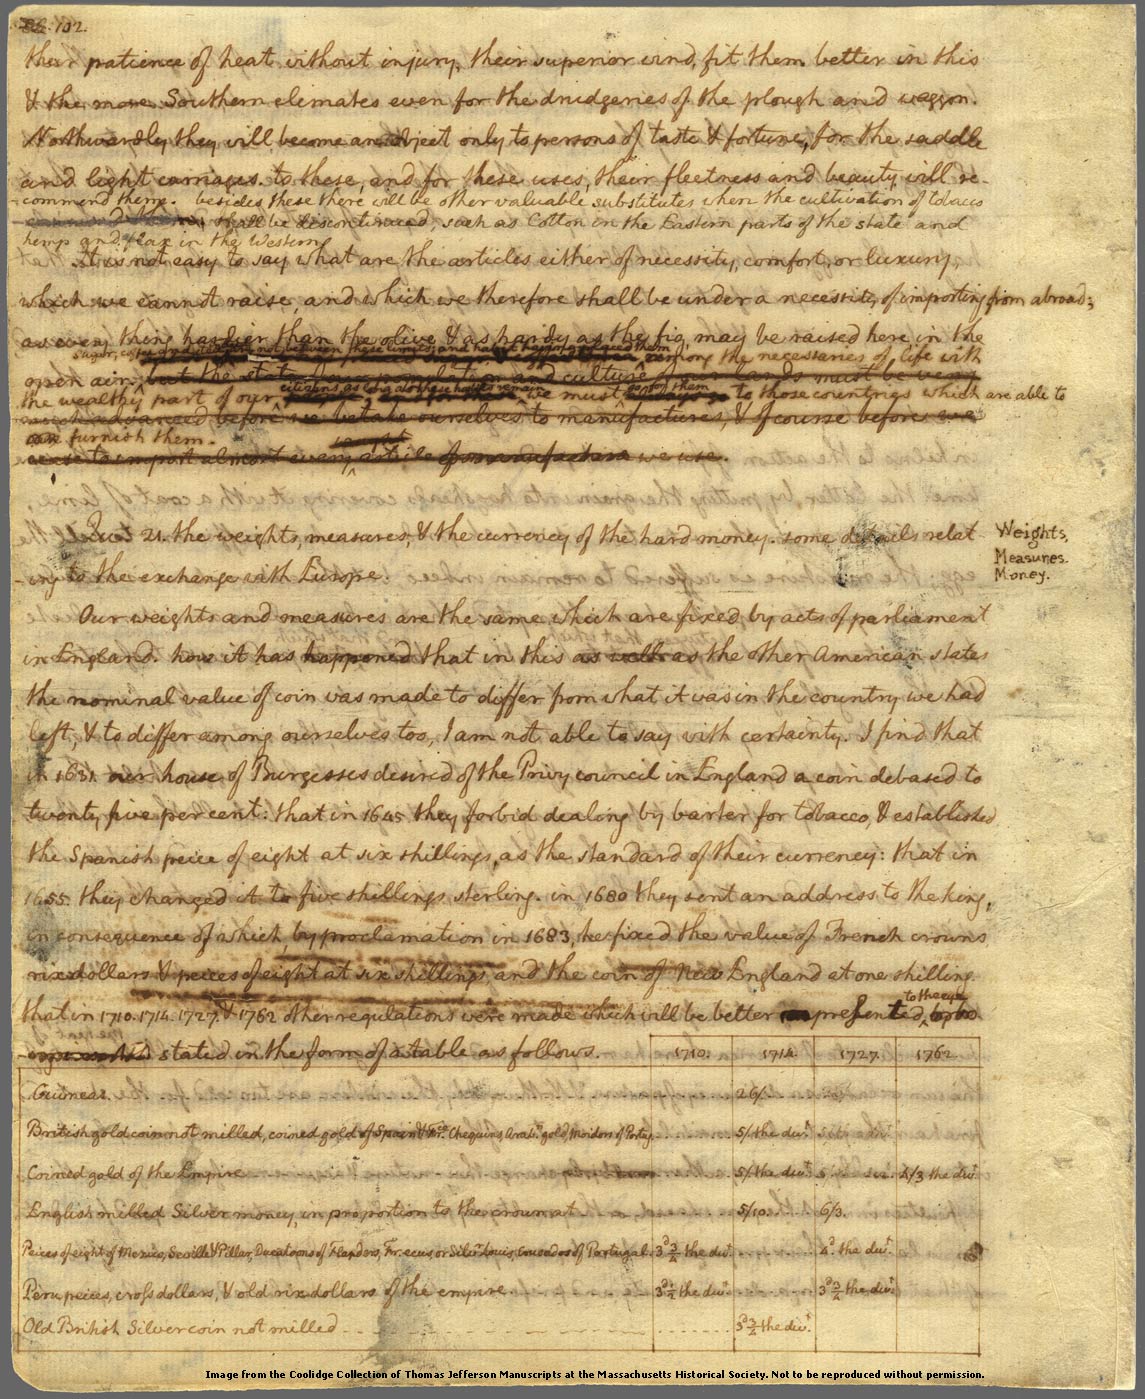 102.
their patience of heat without injury, their superior wind, fit them better in this
& the more Southern climates even for the drudgeries of the plough and waggon.
Northwardly they will become an object only to persons of taste & fortune, for the saddle
and light carriages. to these, and for these uses, their fleetness and beauty will re-
commend them. besides these there will be other valuable substitutes when the cultivation of tobacco
shall be discontinued, such as Cotton in the Eastern parts of the state and
hemp and flax in the Western.
It is not easy to say what are the articles either of necessity, comfort, or luxury,
which we cannot raise, and which we therefore shall be under a necessity of importing from abroad;
as every thing hardier than the olive & as hardy as the fig, may be raised here in the
sugar, coffee and tea not between these limits; and habit having placed them among the necessaries of life with
open air. but the state of our population and culture of our lands must be very
the wealthy part of our citizens, as long as these habits remain we must go for them to those countries which are able to
much advanced before we betake ourselves to manufactures, & of course before we
furnish them.
cease to import almost every article of manufacture we use.
Qu. 21. the weights, measures, & the currency of the hard money. some details relat-
Weights,
Measures.
Money.
-ing to the exchange with Europe.
Our weights and measures are the same which are fixed by acts of parliament
in England. how it has happened that in this as well as the other American states
the nominal value of coin was made to differ from what it was in the country we had
left, & to differ among ourselves too, I am not able to say with certainty. I find that
in 1631. our house of Burgesses desired of the Privy council in England a coin debased to
twenty five per cent: that in 1645 they forbid dealing by barter for tobacco, & established
the Spanish peice of eight at six shillings, as the standard of their currency: that in
1655. they changed it to five shillings sterling. in 1680 they sent an address to the king,
in consequence of which, by proclamation in 1683, he fixed the value of French crowns,
rixdollars & peices of eight at six shillings, and the coin of New England at one shilling.
that in 1710. 1714. 1727. & 1762 other regulations were made which will be better presented to the eye
stated in the form of a table as follows.
1710. 1714. 1727. 1762
Guineas. 26/.
British gold coin not milled, coined gold of Spain & Fr.ce Chequins, Arab.n gold, moidors of Portug. 5/ the dw.t
Coined gold of the Empire 5/ the dw.t 4/3 the dw.t
English milled Silver money, in proportion to the crown at 5/10. 6/3.
Peices of eight of Mexico, Seville & Pillar, Ducatoons of Flanders, Fr. ecus or Silv.r Louis, Crusados of Portugal 3d 3/4 the dw.t 4d. the dw.t
Peru peices, cross dollars, & old rixdollars of the empire 3d 1/2 the dw.t 3d 3/4 the dw.t
Old British Silver coin not milled 3d 3/4 the dw.t
Image from the Coolidge Collection of Thomas Jefferson Manuscripts at the Massachusetts Historical Society. Not to be reproduced without permission.